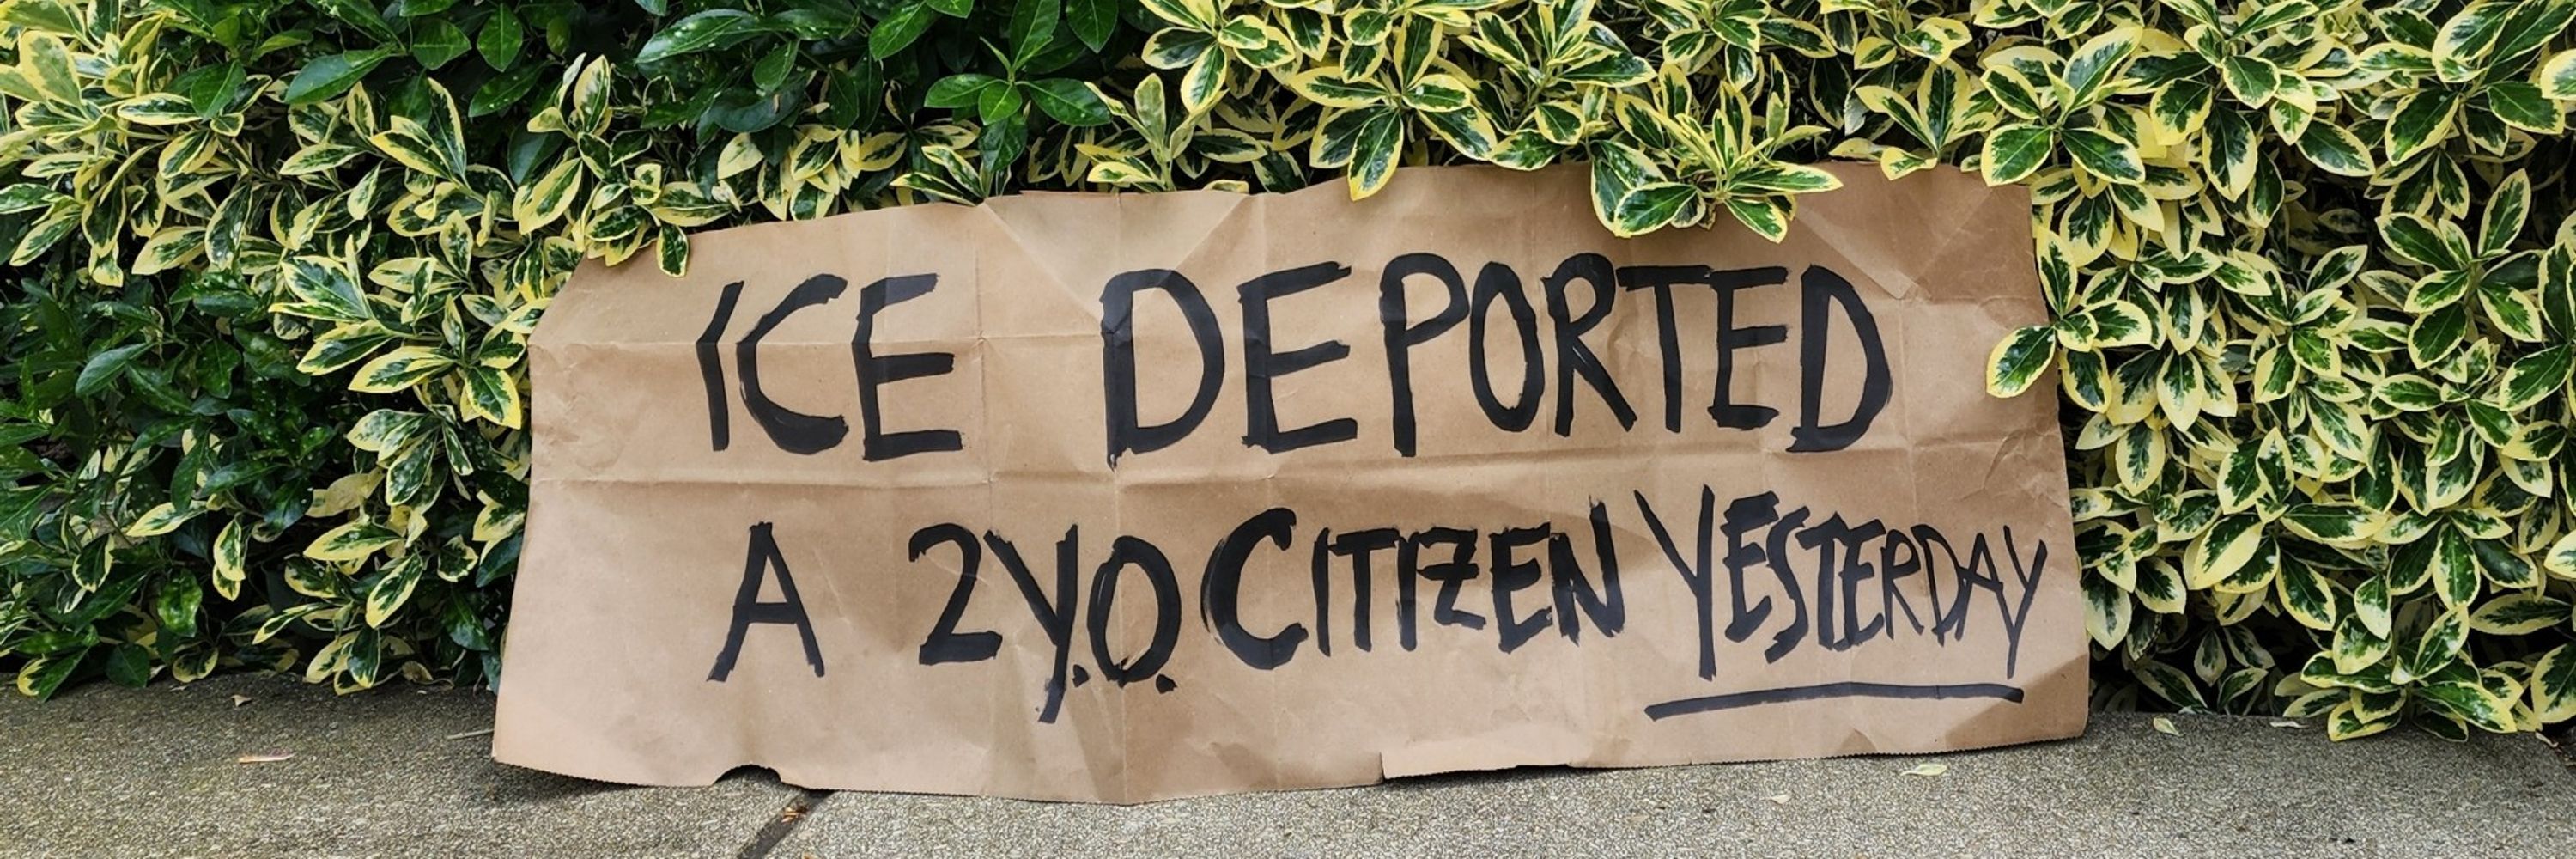 ICE DEPORTED
A 2Y.O. CITIZEN YESTERDAY